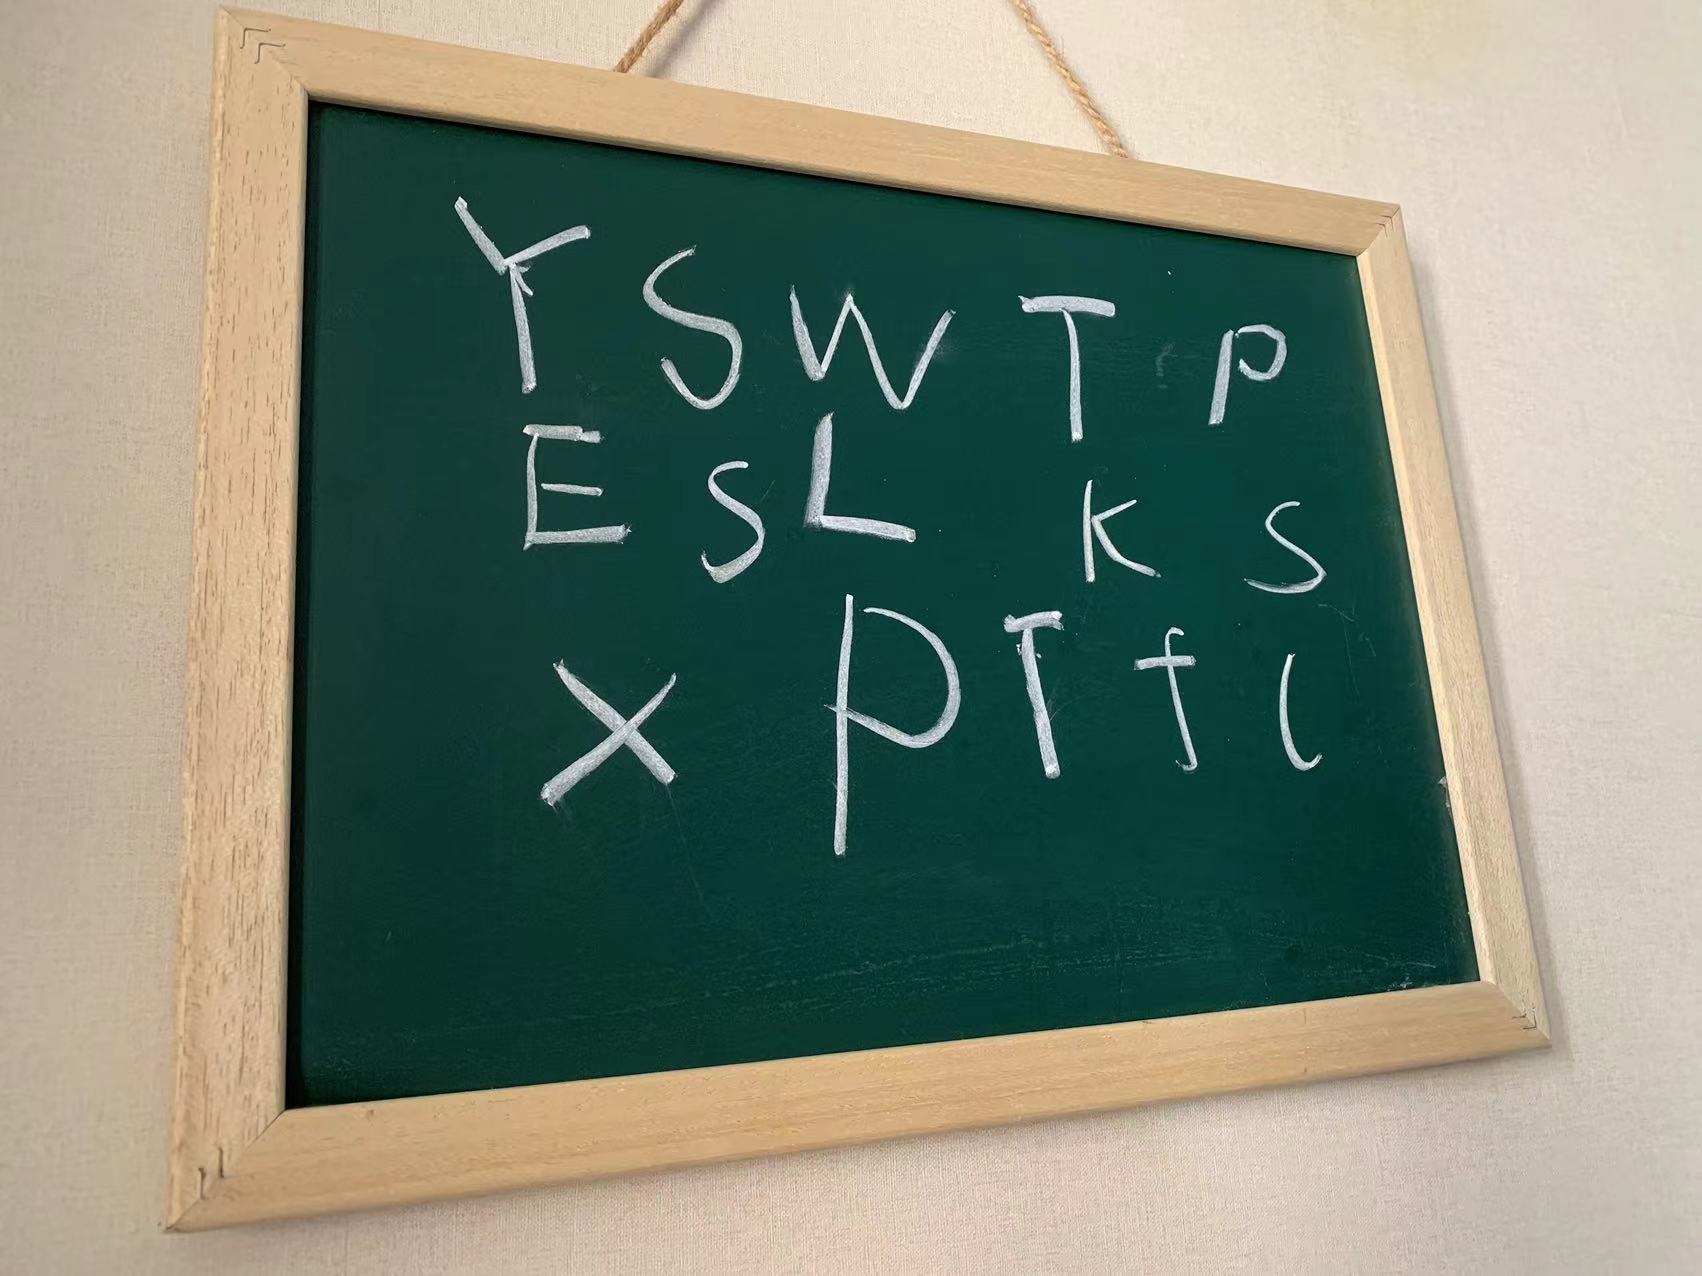 Y S W T P
E S L K S
X P T f l